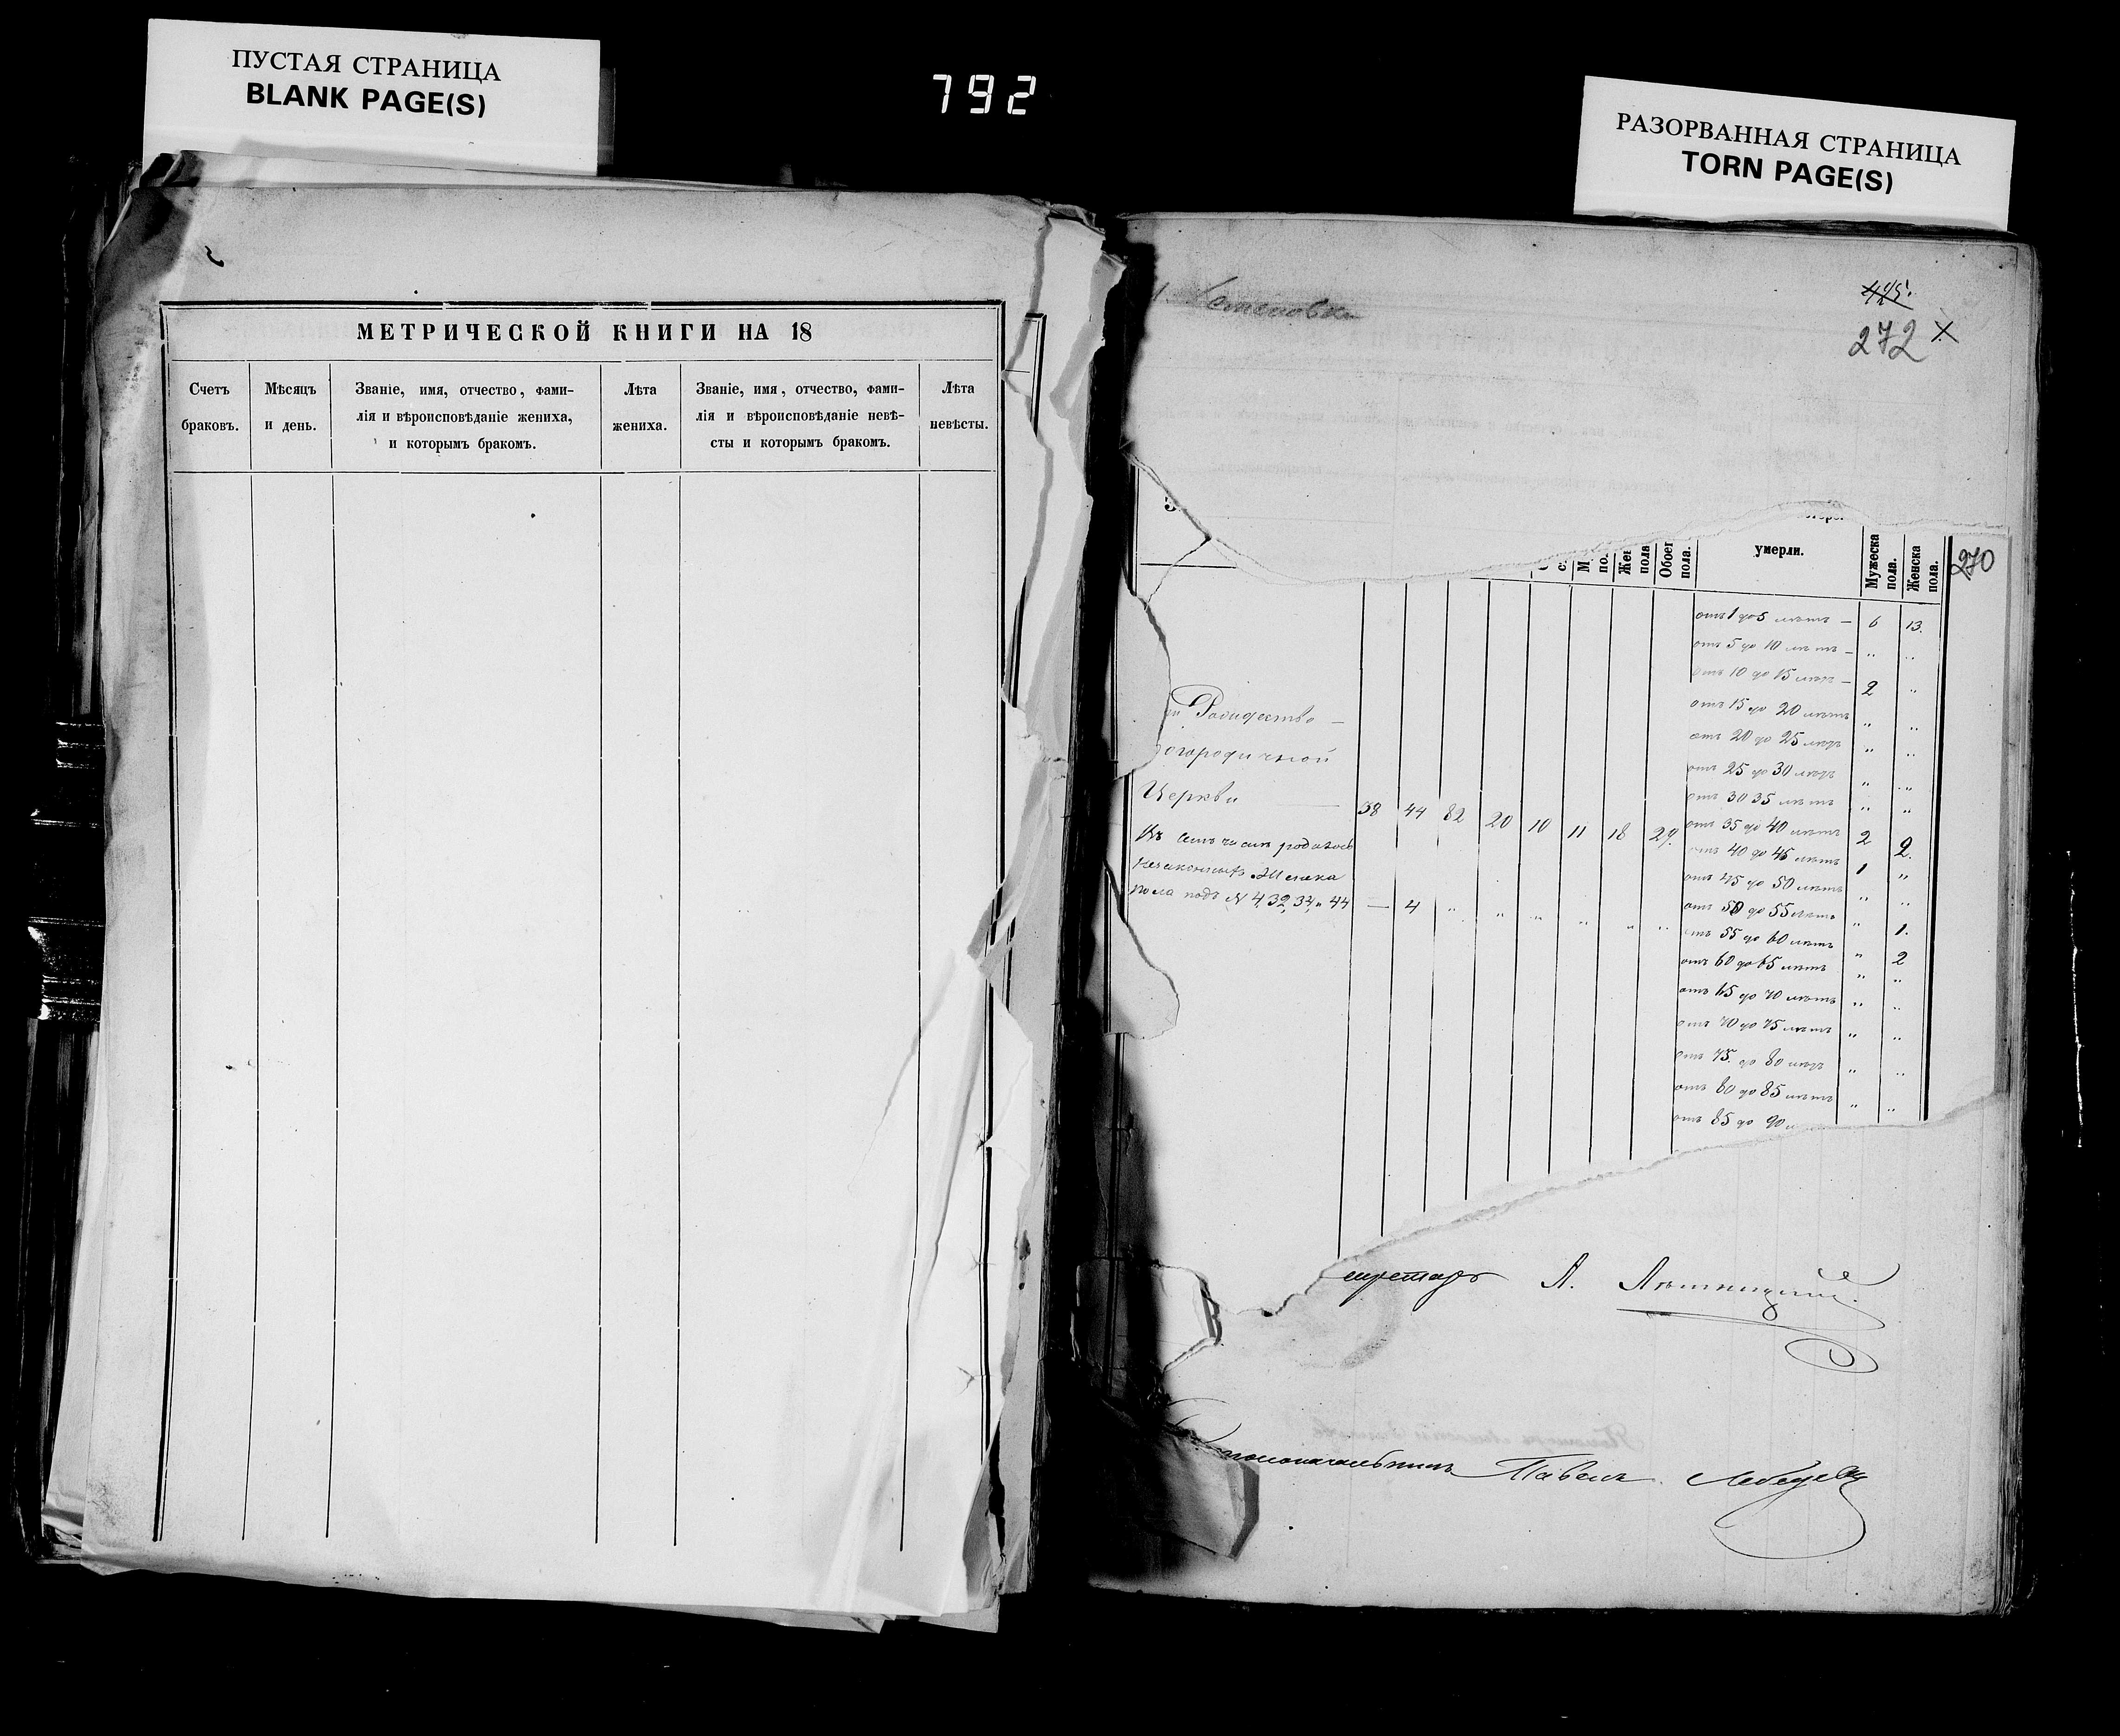 ПУСТАЯ СТРАНИЦА
BLANK PAGE(S)
792
РАЗОРВАННАЯ СТРАНИЦА
TORN PAGE(S)
МЕТРИЧЕСКОЙ КНИГИ НА 18
Счетъ браковъ.
Мѣсяцъ и день.
Званіе, имя, отчество, фами-
лія и вѣроисповѣданіе жениха,
и которымъ бракомъ.
Лѣта жениха.
Званіе, имя, отчество, фами-
лія и вѣроисповѣданіе невѣ-
сты и которымъ бракомъ.
Лѣта невѣсты.
272
270
умерли.
Мужеска пола.
Женска пола.
пола.
отъ 1 до 5 лѣтъ — 6 13.
отъ 5 до 10 лѣтъ — „ „
отъ 10 до 15 лѣтъ — 2 „
отъ 15 до 20 лѣтъ „ „
отъ 20 до 25 лѣтъ „ „
отъ 25 до 30 лѣтъ „ „
отъ 30 35 лѣтъ „ „
отъ 35 до 40 лѣтъ 2 2.
отъ 40 до 45 лѣтъ 1 „
отъ 45 до 50 лѣтъ „ „
отъ 50 до 55 лѣтъ „ 1.
отъ 55 до 60 лѣтъ „ 2
отъ 60 до 65 лѣтъ „ „
отъ 65 до 70 лѣтъ „ „
отъ 70 до 75 лѣтъ „ „
отъ 75 до 80 лѣтъ „ „
отъ 80 до 85 лѣтъ „ „
отъ 85 до 90
Рождество —
огородичной
Церкви — 38 44 82 20 10 11 18 29.
Въ семъ числѣ родилось
незаконныхъ Женска
пола подъ N 4, 32, 34, и 44 — 4 „ „ „ „ „ „
А.
Павелъ Лебедевъ